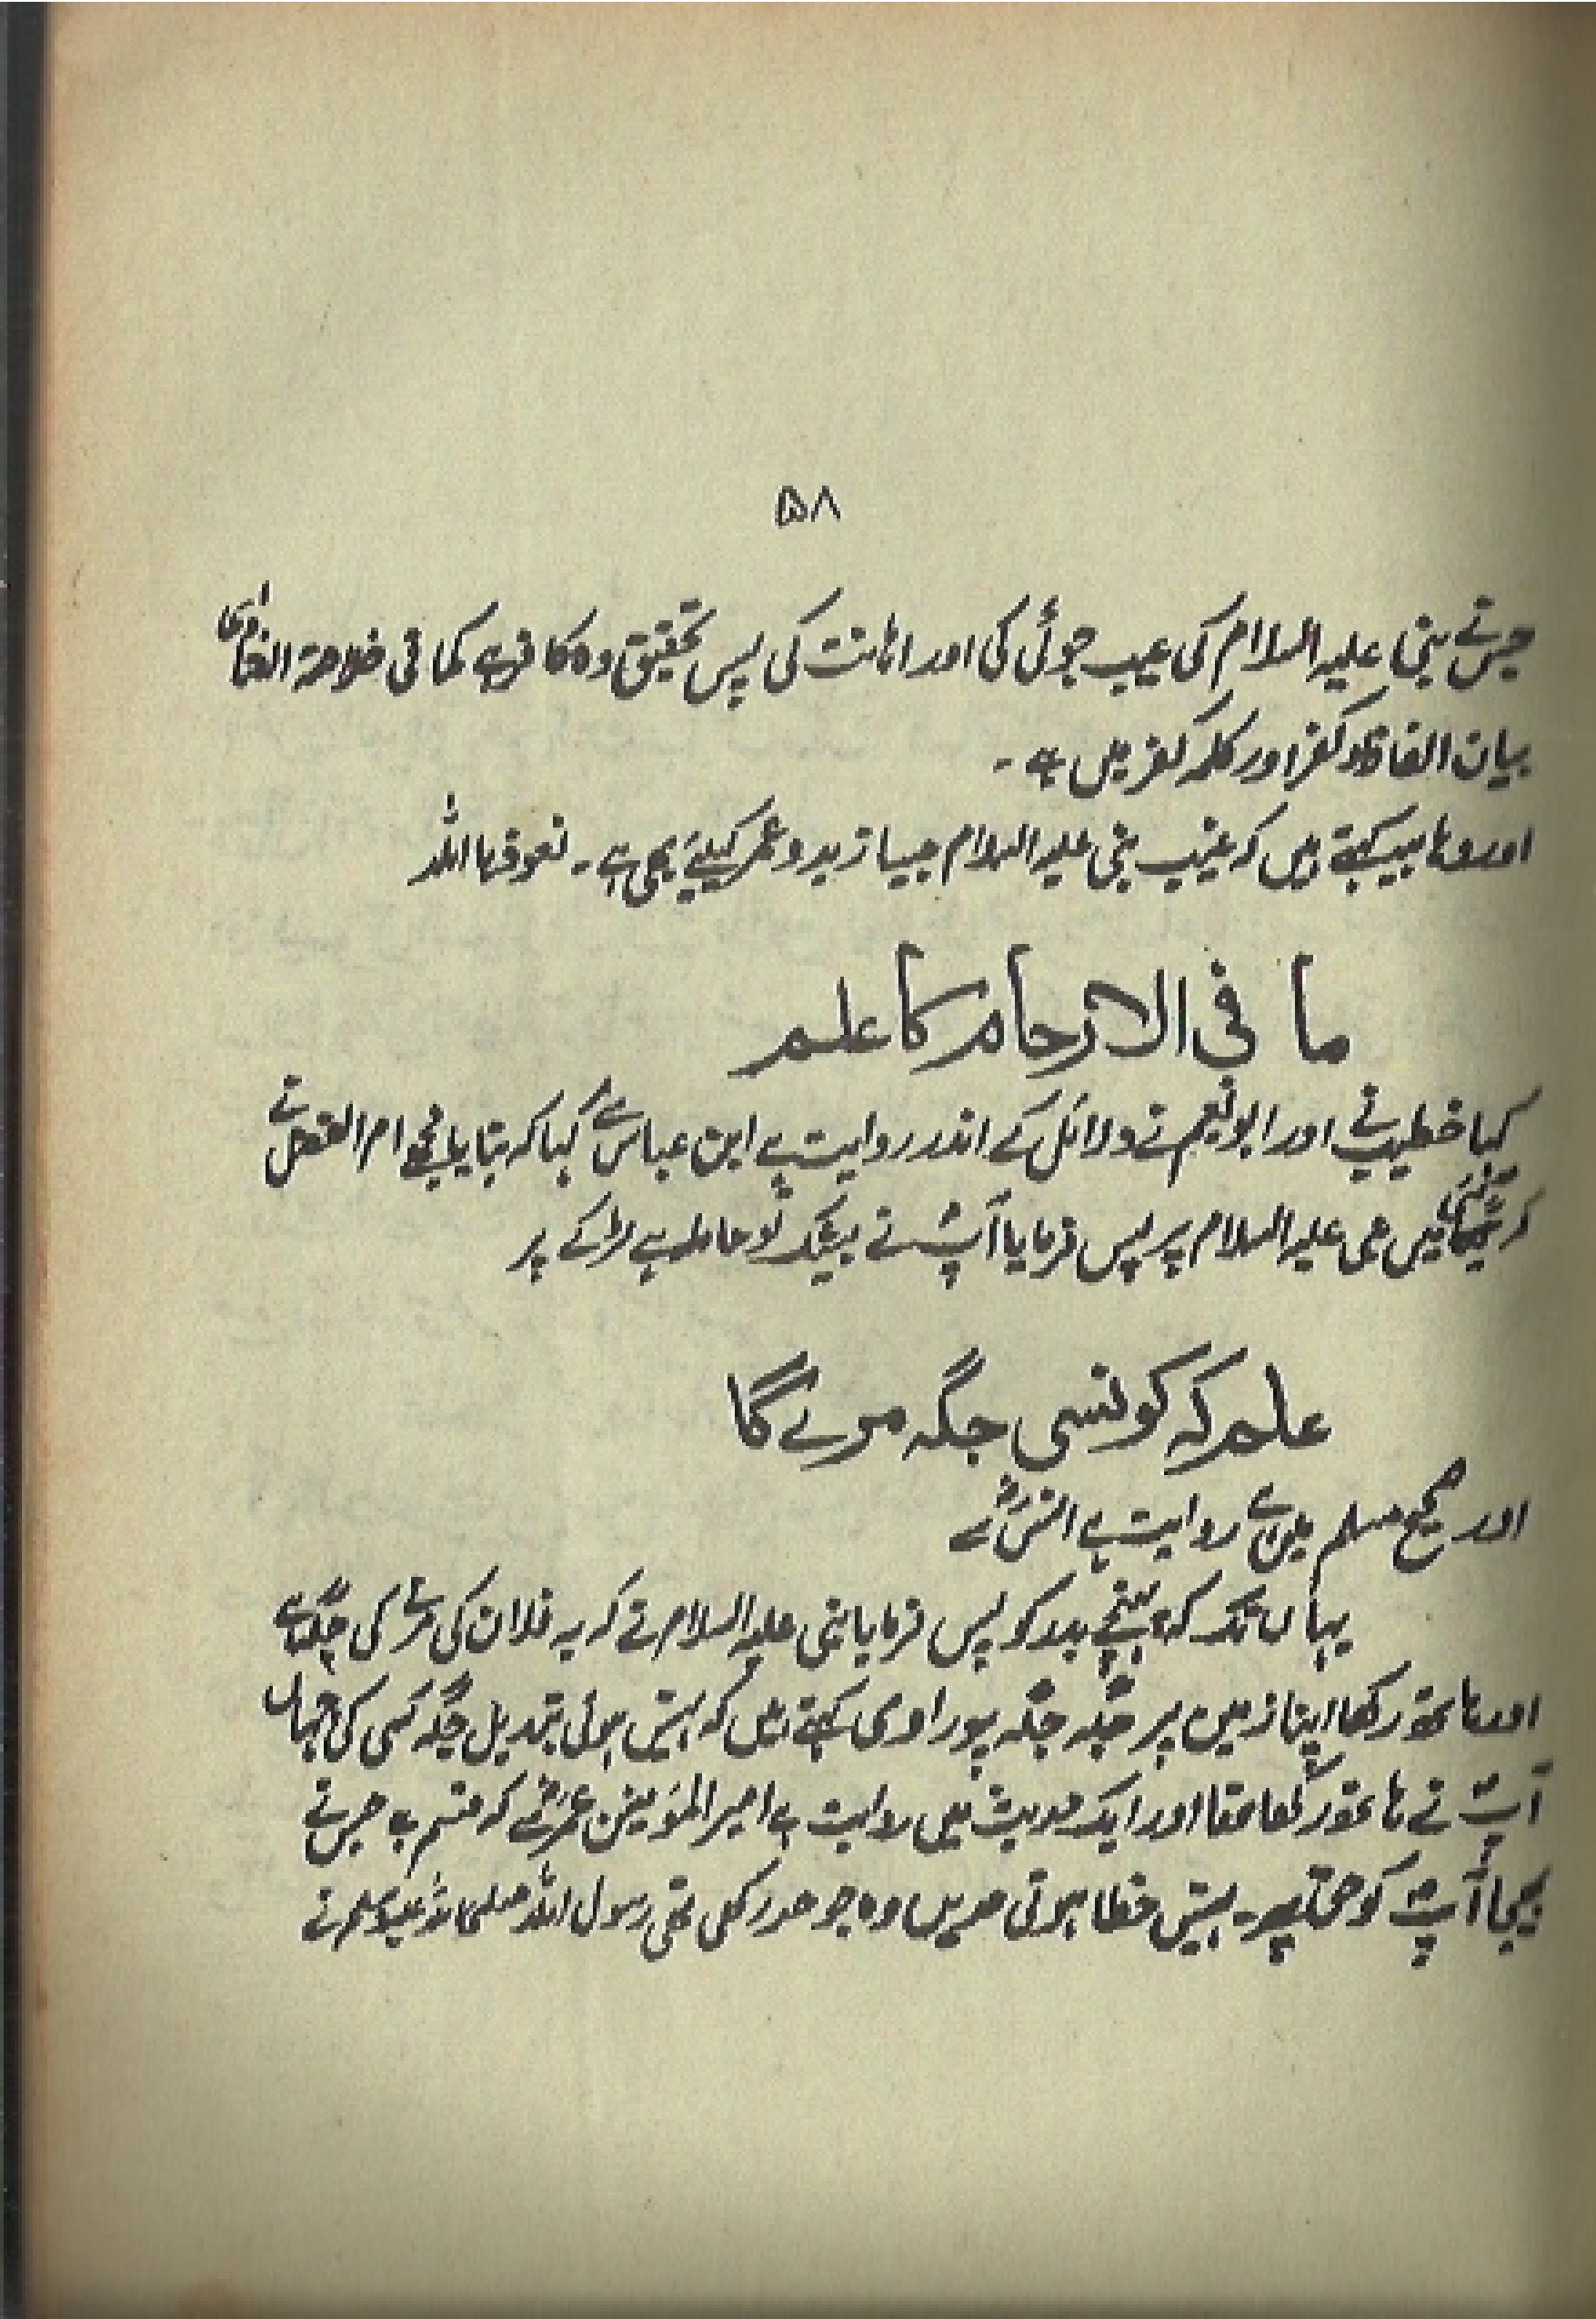 ۵۸
جس نے نبی علیہ السلام کی عیب جوئی کی اور اہانت کی پس تحقیق وہ کافر ہے کما فی خلاصۃ الفتاویٰ
بیان الفاظ کفر اور کلمہ کفر میں ہے ۔
اور وہابیہ کہتے ہیں کہ غیب نبی علیہ السلام جیسا زید و عمر کیلئے بھی ہے ۔ نعوذ باللہ
ما فی الارحام کا علم
کہا خطیب نے اور ابو نعیم نے دلائل کے اندر روایت ہے ابن عباس سے کہا کہ بتایا مجھے ام الفضل نے
کہ میں نبی علیہ السلام پر پس فرمایا آپؐ نے بیشک تو حاملہ ہے لڑکے پر
علم کہ کونسی جگہ مرے گا
اور صحیح مسلم میں ہے روایت ہے انسؓ سے
یہاں تک کہ پہنچے بدر کو پس فرمایا نبی علیہ السلام نے کہ یہ فلان کی مرنے کی جگہ ہے
اور ہاتھ رکھا اپنا زمین پر جگہ جگہ پر راوی کہتے ہیں کہ نہیں ہوئی تبدیل جگہ کسی کی جہاں
آپؐ نے ہاتھ رکھا تھا اور ایک حدیث میں روایت ہے امیر المؤمنین عمرؓ سے کہ قسم ہے جس نے
بھیجا آپؐ کو حق پر ۔ نہیں خطا ہوئی حدیں وہ جو حد رکھی تھی رسول اللہ صلی اللہ علیہ وسلم نے